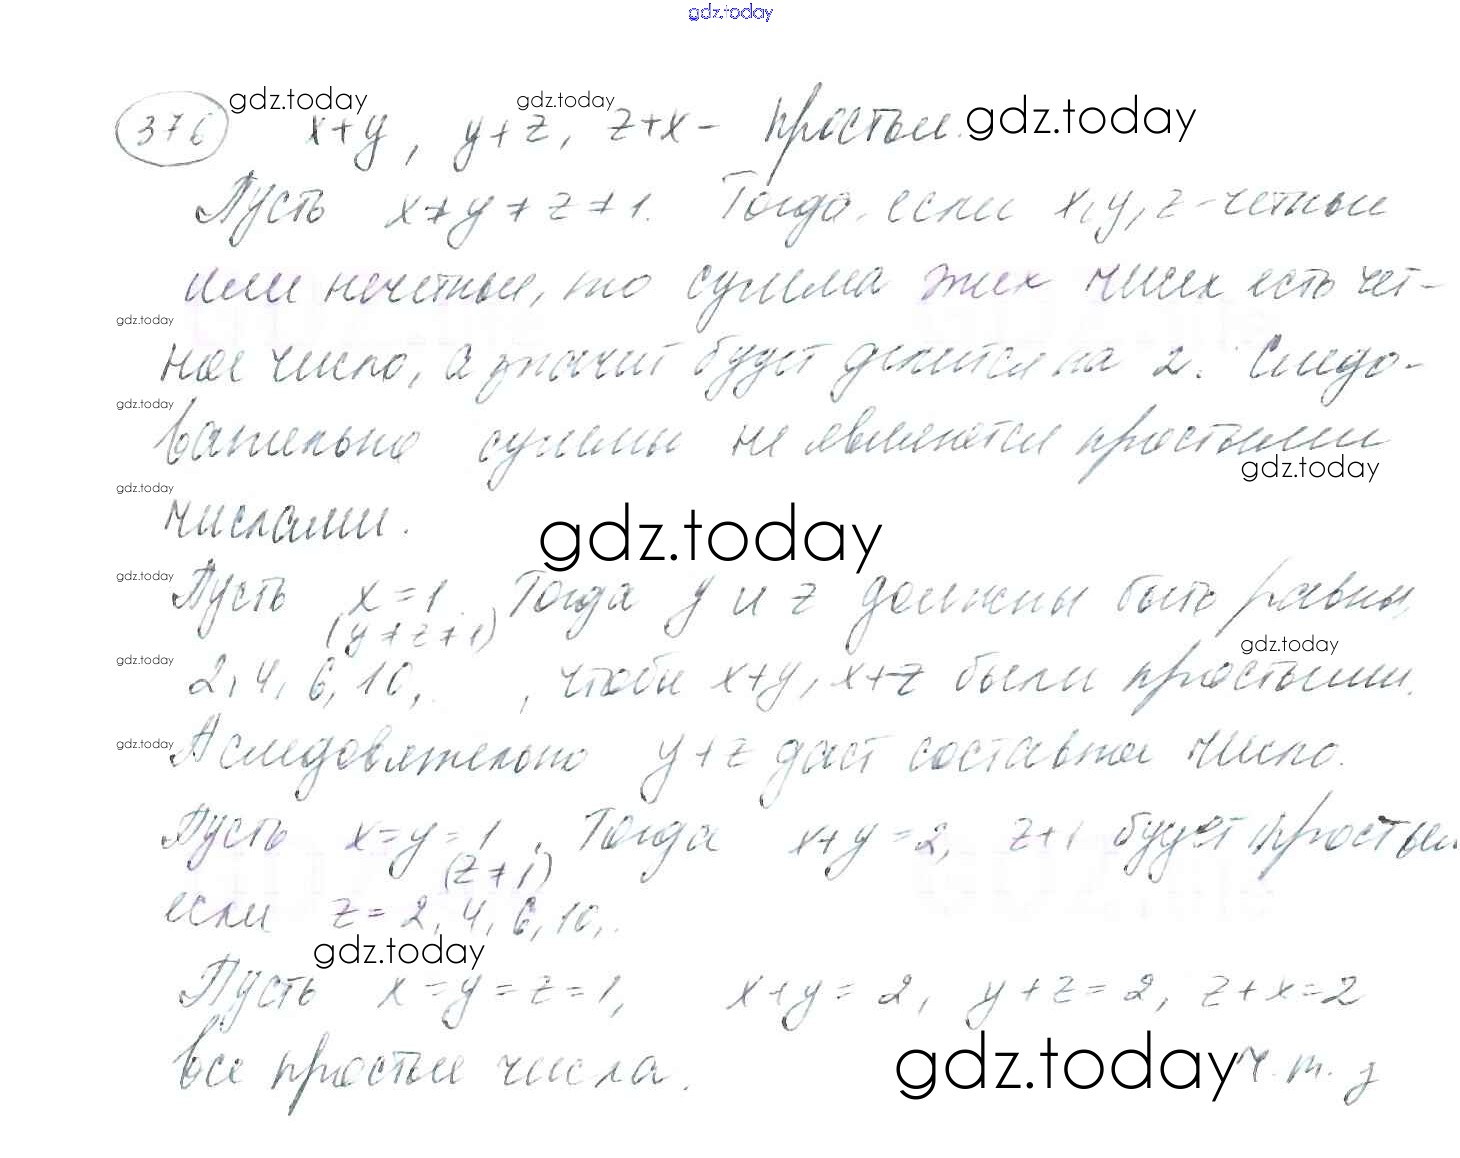 gdz.today
376 gdz.today x+y, gdz.today y+z, z+x - простые. gdz.today
Пусть x≠y≠z≠1. Тогда, если x, y, z - четные
или нечетные, то сумма этих чисел есть чет-
gdz.today
ное число, а значит будет делится на 2. Следо-
gdz.today
вательно суммы не являются простыми
gdz.today
gdz.today
числами.
gdz.today
gdz.today
Пусть x=1. Тогда y и z должны быть равны,
(y≠z≠1)
gdz.today
gdz.today
2, 4, 6, 10, , чтобы x+y, x+z были простыми.
gdz.today
А следовательно y+z даст составное число.
Пусть x=y=1, Тогда x+y=2, z+1 будет простым
(z≠1)
если z=2, 4, 6, 10,.
gdz.today
Пусть x=y=z=1, x+y=2, y+z=2, z+x=2
все простые числа. gdz.today ч.т.д